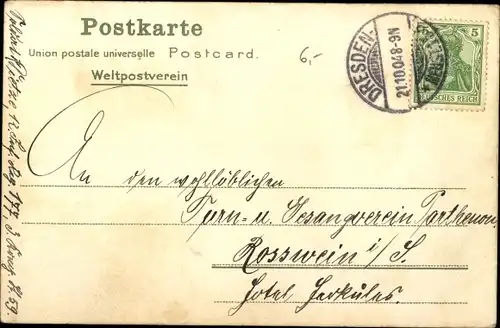 Postkarte
Union postale universelle Postcard.
Weltpostverein
6,-
DRESDEN-
21.10.04.8-9N
5
DEUTSCHES REICH
An den wohllöblichen
Turn- u. Gesangverein Parthenon
Rosswein i/S.
Hotel Herkules.
12. 177. 3